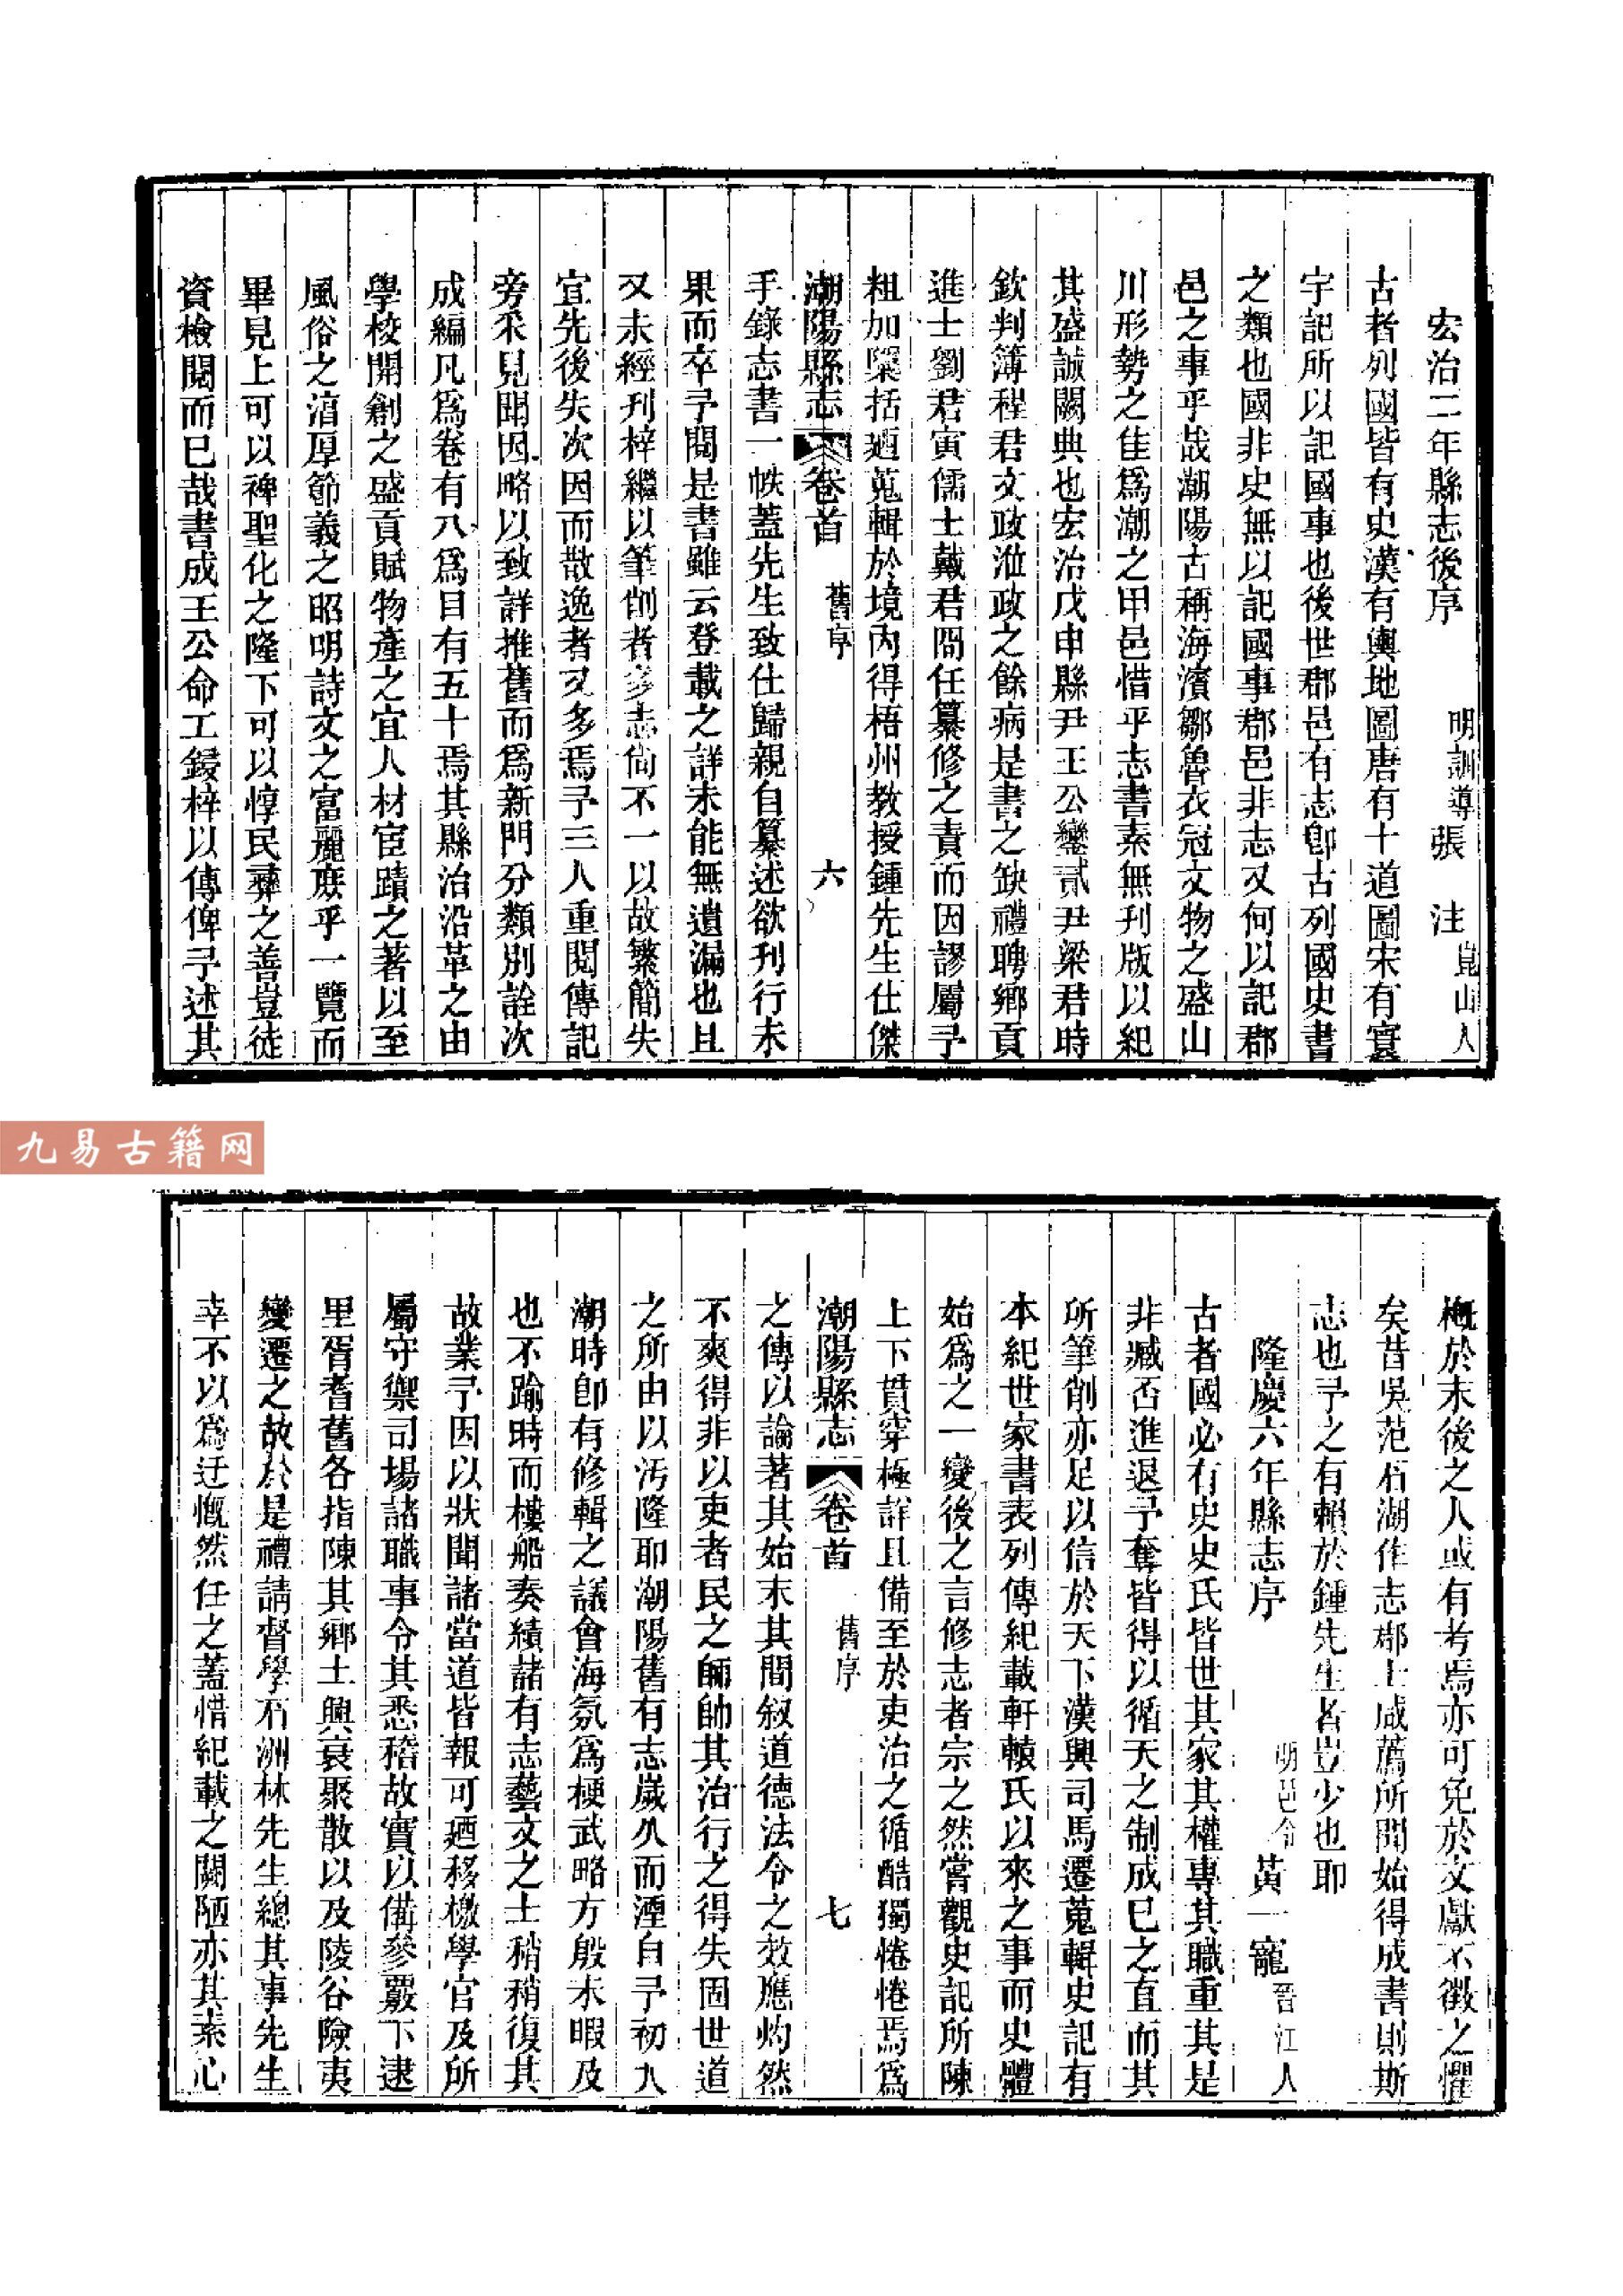 宏治二年縣志後序 明訓導 張 注 崑山人
古者列國皆有史漢有輿地圖唐有十道圖宋有寰
宇記所以記國事也後世郡邑有志卽古列國史書
之類也國非史無以記國事郡邑非志又何以記郡
邑之事乎哉潮陽古稱海濱鄒魯衣冠文物之盛山
川形勢之佳爲潮之甲邑惜乎志書素無刋版以紀
其盛誠闕典也宏治戊申縣尹王公鑾貳尹梁君時
欽判簿程君文政涖政之餘病是書之缺禮聘鄉貢
進士劉君寅儒士戴君冏任纂修之責而因謬屬予
粗加檃括廼蒐輯於境內得梧州教授鍾先生仕傑
潮陽縣志 卷首 舊序 六
手錄志書一帙蓋先生致仕歸親自纂述欲刋行未
果而卒予閱是書雖云登載之詳未能無遺漏也且
又未經刋梓繼以筆削者多志尙不一以故繁簡失
宜先後失次因而散逸者又多焉予三人重閱傳記
旁采見聞因略以致詳推舊而爲新門分類別詮次
成編凡爲卷有八爲目有五十焉其縣治沿革之由
學校開創之盛貢賦物產之宜人材宦蹟之著以至
風俗之湻厚節義之昭明詩文之富麗庶乎一覽而
畢見上可以裨聖化之隆下可以惇民彝之善豈徒
資檢閱而已哉書成王公命工鋟梓以傳俾予述其
槪於末後之人或有考焉亦可免於文獻不徵之懼
矣昔吳范石湖作志鄉士咸薦所聞始得成書則斯
志也予之有賴於鍾先生者豈少也耶
隆慶六年縣志序 明邑令 黃一龍 晉江人
古者國必有史史氏皆世其家其權專其職重其是
非臧否進退予奪皆得以循天之制成已之直而其
所筆削亦足以信於天下漢興司馬遷蒐輯史記有
本紀世家書表列傳紀載軒轅氏以來之事而史體
始爲之一變後之言修志者宗之然嘗觀史記所陳
上下貫穿極詳且備至於吏治之循酷獨惓惓焉爲
潮陽縣志 卷首 舊序 七
之傳以論著其始末其間叙道德法令之效應灼然
不爽得非以吏者民之師帥其治行之得失固世道
之所由以汚隆耶潮陽舊有志嵗久而湮自予初入
潮時卽有修輯之議會海氛爲梗武略方殷未暇及
也不踰時而樓船奏績諸有志藝文之士稍稍復其
故業予因以狀聞諸當道皆報可廼移檄學官及所
屬守禦司場諸職事令其悉稽故實以備參覈下逮
里胥耆舊各指陳其鄉土興衰聚散以及陵谷險夷
變遷之故於是禮請督學石洲林先生總其事先生
幸不以爲迂慨然任之蓋惜紀載之闕陋亦其素心
九易古籍网